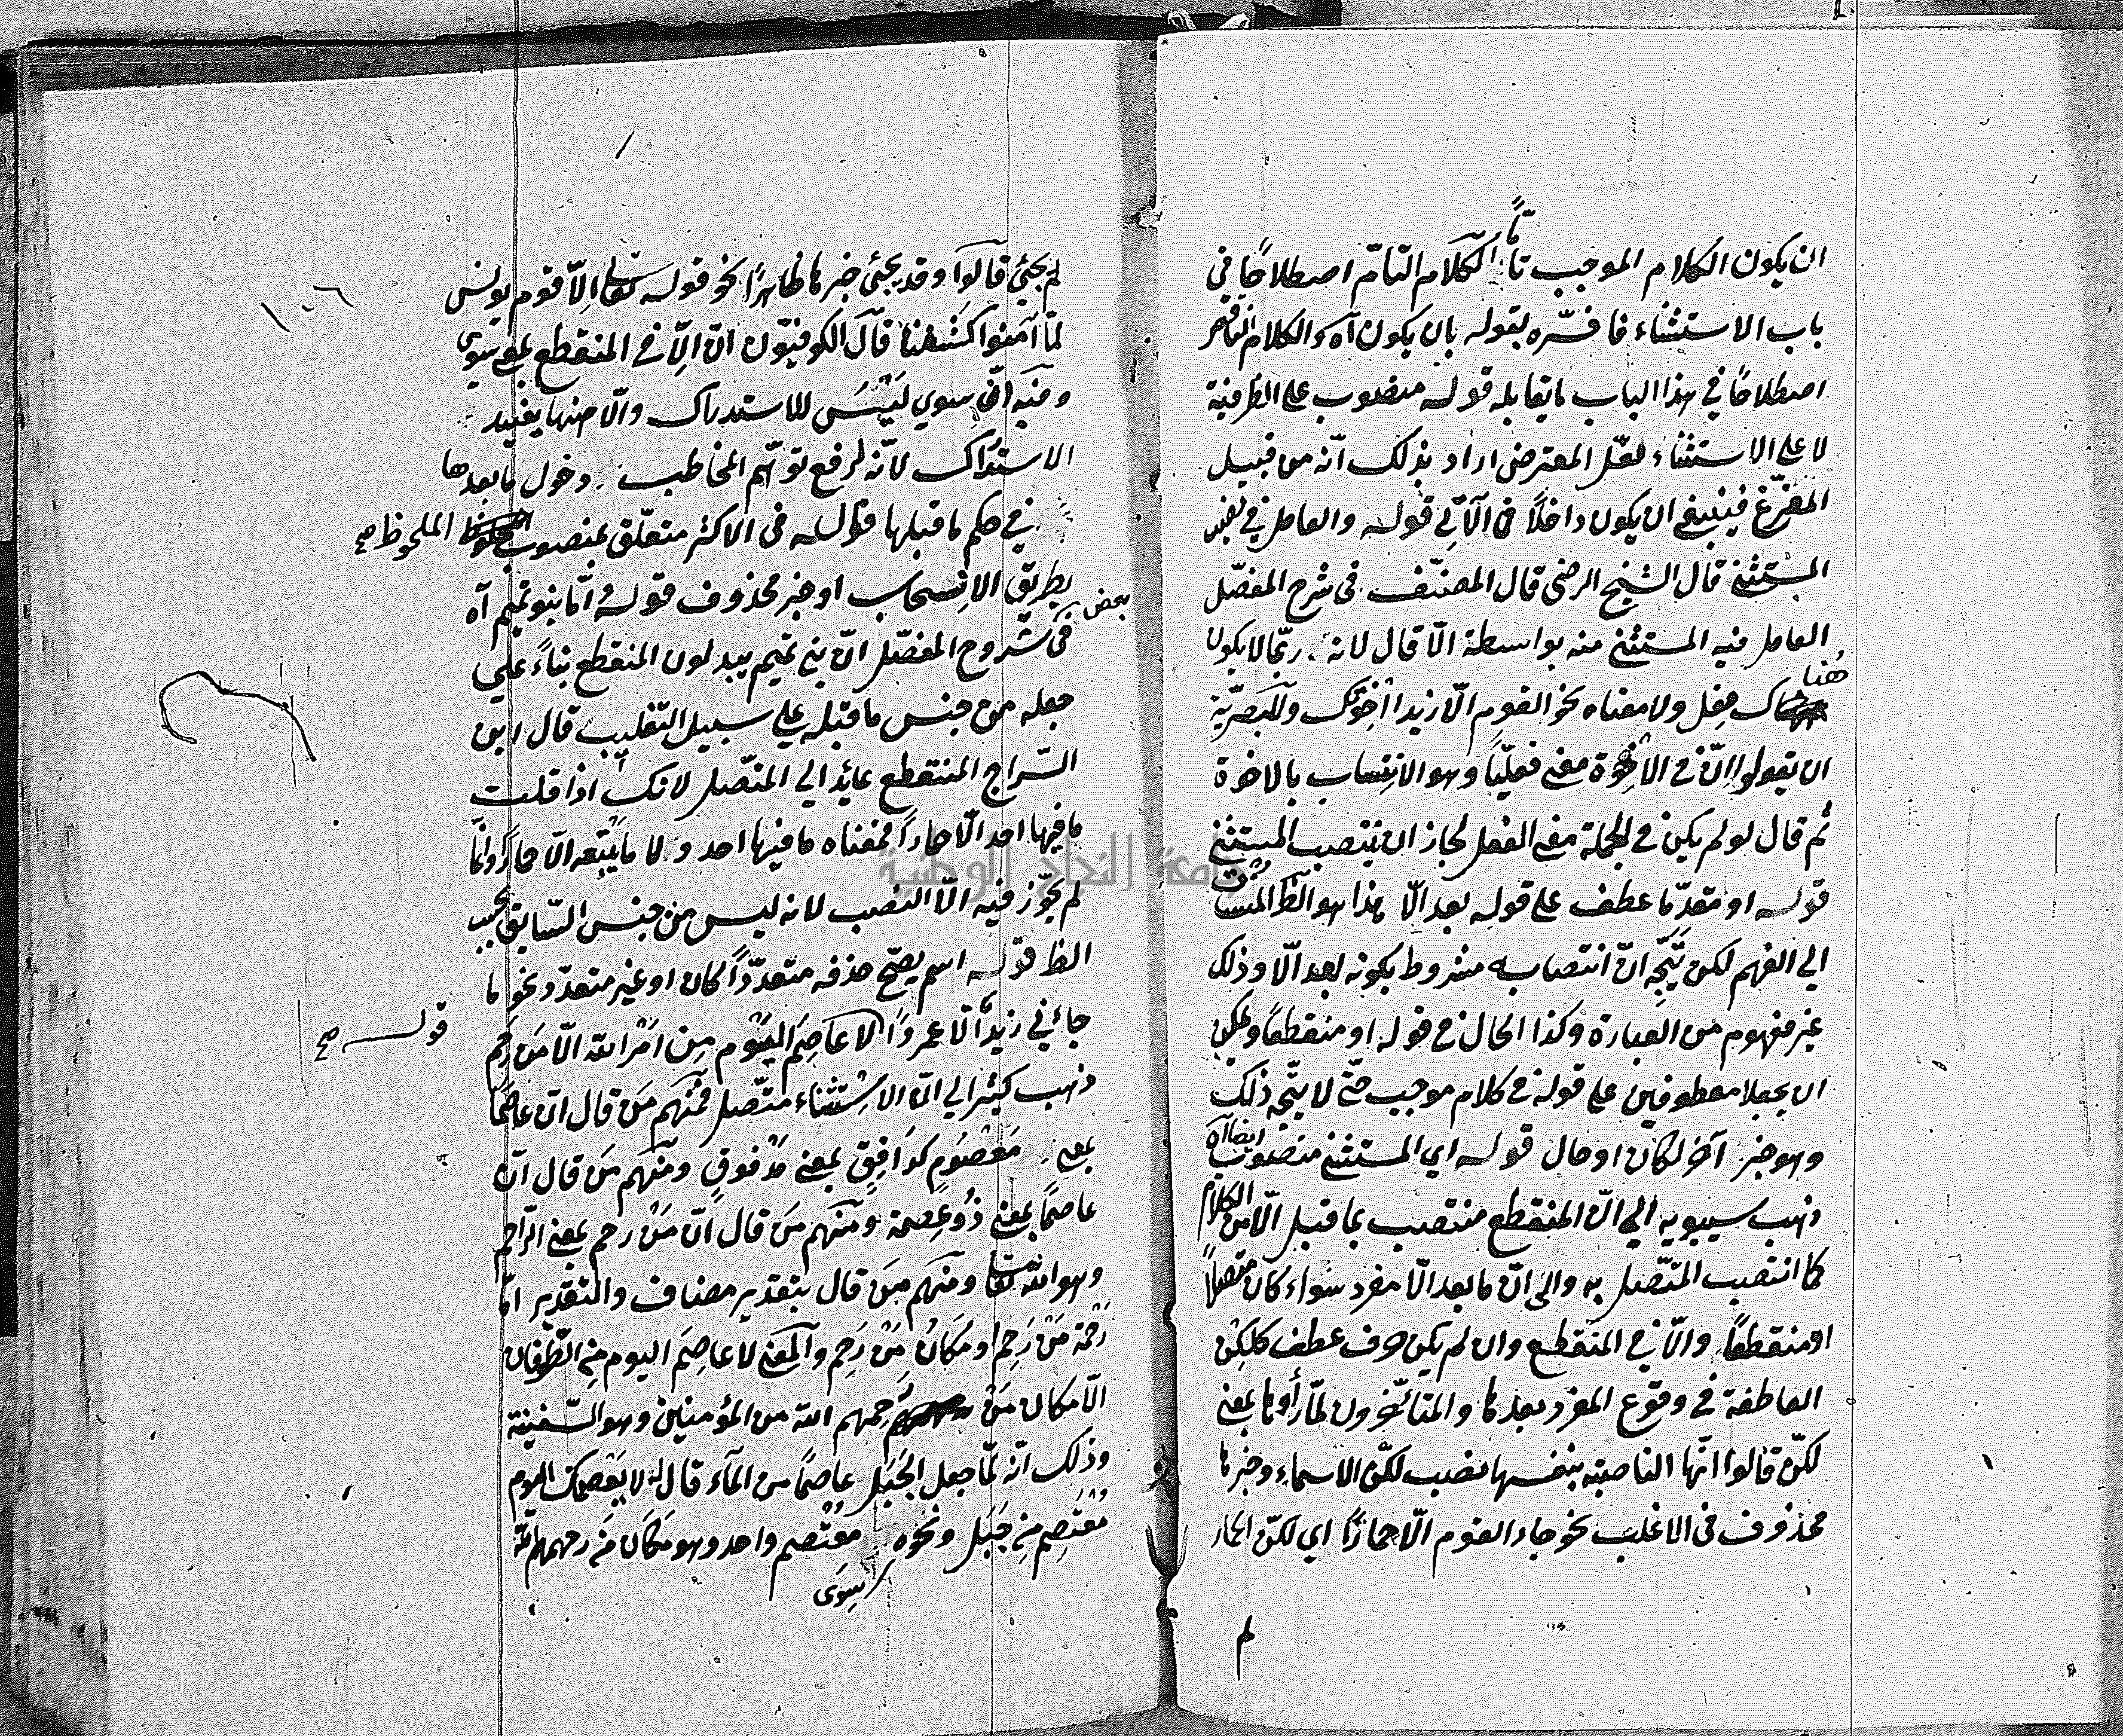 ان يكون الكلام الموجب تامّاً الكلام التامّ اصطلاحًا في
باب الاستثناء ما فسّره بقوله بان يكون آه والكلام الناقص
اصطلاحًا في هذا الباب ما يقابله قوله منصوب على الظرفية
لا على الاستثناء لعلّ المعترض اراد بذلك انّه من قبيل
المفرّغ فينبغي ان يكون داخلاً في الآتي قوله والعامل في نصب
المستثنى قال الشيخ الرضي قال المصنّف في شرح المفصّل
العامل فيه المستثنى منه بواسطة الّا قال لانه ربّما لا يكون
هناك فعل ولا معناه نحو القوم الّا زيدا اخوتك وللبصريّة
ان يقولوا انّ في الاخوة معنى فعليّاً وهو الانتساب بالاخوة
ثم قال لو لم يكن في الجملة معنى الفعل لجاز ان ينتصب المستثنى
قوله او مقدّما عطف على قوله بعد الّا هذا هو الظ المنساق
الى الفهم لكن يتّجه انّ انتصابه مشروط بكونه بعد الّا وذلك
غير مفهوم من العبارة وكذا الحال في قوله او منقطعًا ويمكن
ان يجعلا معطوفين على قوله في كلام موجب حتّى لا يتّجه ذلك
وهو خبر آخر لكان او حال قوله اي المستثنى منصوب ايضا آه
ذهب سيبويه الى انّ المنقطع منتصب بما قبل الّا من الكلام
كما انتصب المتّصل به والى انّ ما بعد الّا مفرد سواء كان متصلاً
او منقطعًا والّا في المنقطع وان لم يكن حرف عطف كلكِنْ
العاطفة في وقوع المفرد بعدها والمتأخّرون لمّا رأوها بمعنى
لكنّ قالوا انّها الناصبة بنفسها نصب لكنّ الاسماء وخبرها
محذوف في الاغلب نحو جاء القوم الّا حمارًا اي لكنّ الحمار
لم يجئ قالوا وقد يجئ خبرها ظاهرًا نحو قوله تعالى الّا قوم يونس
لمّا آمنوا كشفنا قال الكوفيّون انّ الّا في المنقطع بمعنى سوى
وفيه انّ سوى ليس للاستدراك والّا ههنا يفيد
الاستدراك لانّه لرفع توهّم المخاطب دخول ما بعدها
في حكم ما قبلها قوله في الاكثر متعلّق بمنصوب الملحوظ صح
بطريق الانسحاب او خبر محذوف قوله امّا بنو تميم آه
بعض
في شروح المفصّل انّ بني تميم يبدلون المنقطع بناءً على
جعله من جنس ما قبله على سبيل التغليب قال ابن
السّراج المنقطع عايد الى المتّصل لانك اذا قلت
ما فيها احد الّا حمارًا فمعناه ما فيها احد ولا ما يتبعه الّا حمارًا وانّما
لم يجّوز فيه الّا النصب لانه ليس من جنس السّابق بحسب
الظ قوله اسم يصحّ حذفه متعدّدًا كان او غير متعدّد نحو ما
جائني زيد الّا عمروًا لا عاصم اليوم من امر الله الّا من رحم
قوله صح
ذهب كثير الى انّ الاستثناء متّصل فمنهم من قال انّ عاصمًا
بمعنى معصوم كدافق بمعنى مدفوق ومنهم من قال انّ
عاصمًا بمعنى ذو عصمة ومنهم من قال انّ من رحم بمعنى الرّاحم
وهو الله تعا ومنهم من قال بتقدير مضاف والتقدير امّا
رحمة من رحم او مكان من رحم والمعنى لا عاصم اليوم من الطوفان
الّا مكان من رحمهم الله من المؤمنين وهو السّفينة
وذلك انّه لمّا جعل الجبل عاصمًا من الماء قال له لا يعصمك اليوم
معتصم من جبل ونحوه سوى معتصم واحد وهو مكان من رحمهم الله
جامعة النجاح الوطنية